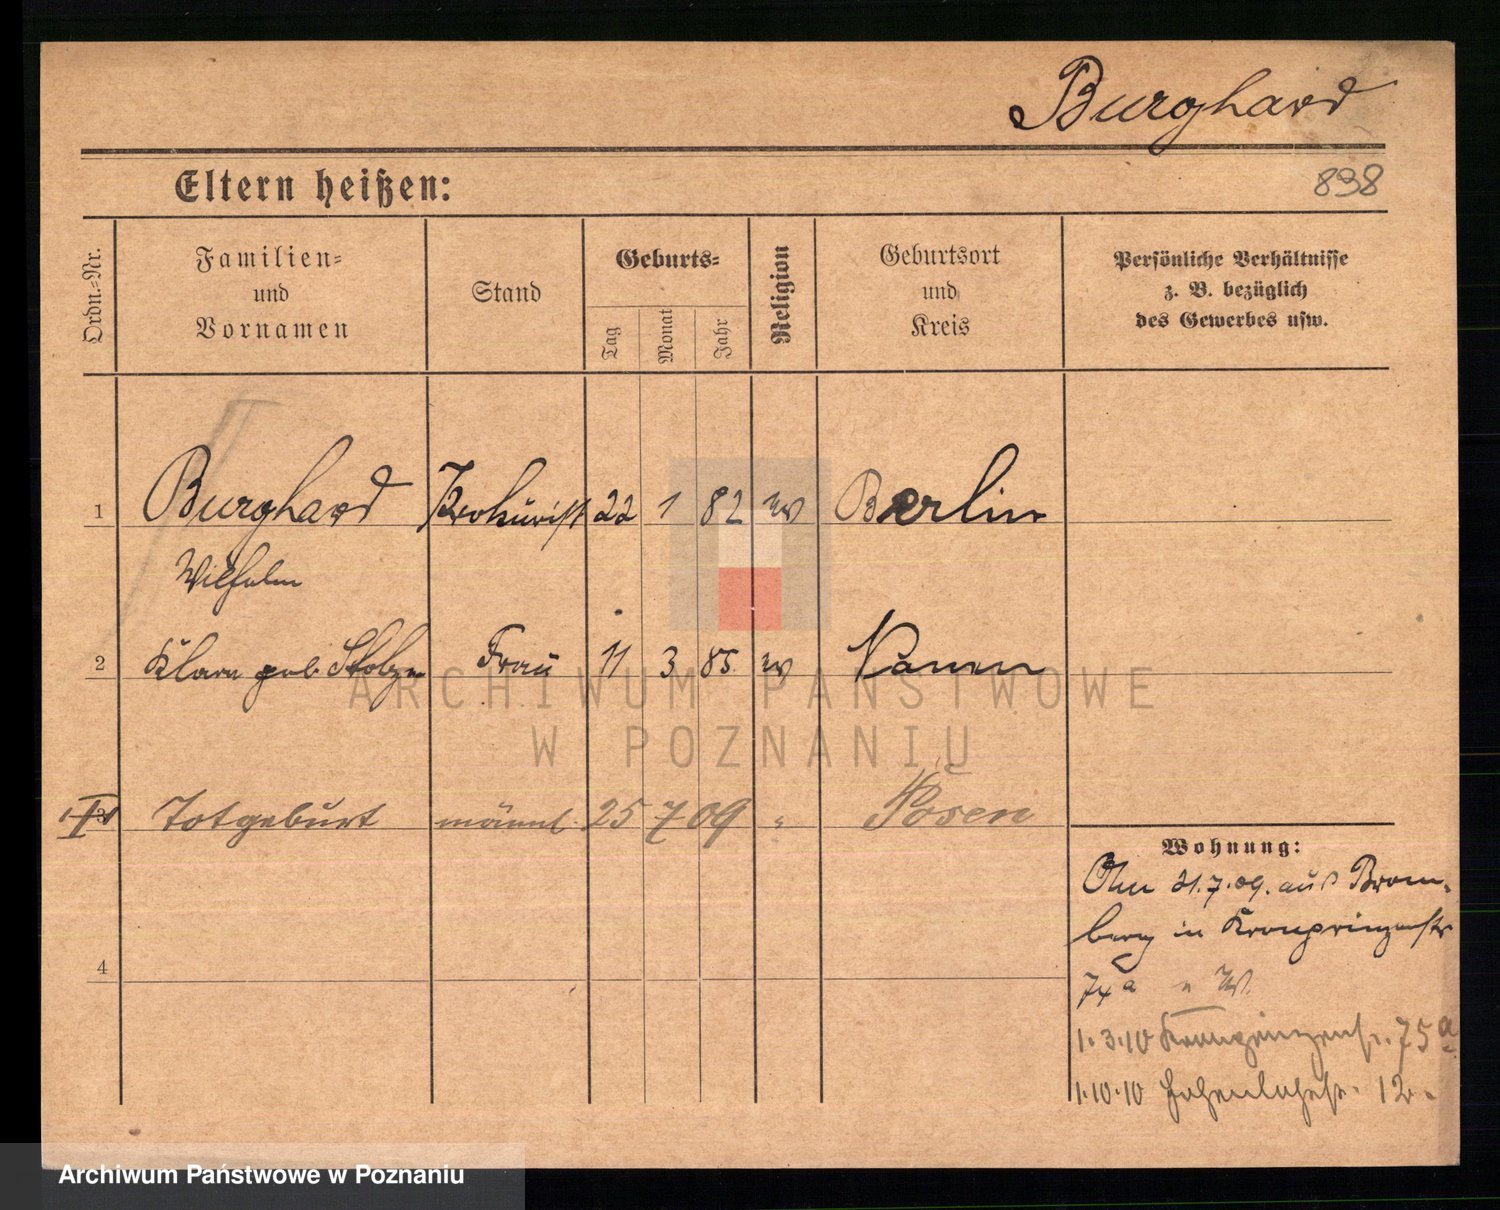 Burghard
Eltern heißen:
898
Ordn.-Nr.
Familien-
und
Vornamen
Stand
Geburts-
Tag
Monat
Jahr
Religion
Geburtsort
und
Kreis
Persönliche Verhältnisse
z. B. bezüglich
des Gewerbes usw.
1 Burghard Prokurist 22 1 82 ev Berlin
Wilhelm
2 Klara geb. Frau 11 3 85. ev Nauen
3 Totgeburt männl. 25 7 09 " Posen
4
Wohnung:
21.7.09. aus Brom-
berg in Kronprinzenstr
74a
1.3.10 Kronprinzenstr. 75a
1.10.10 Hohenlohestr. 12.
ARCHIWUM PAŃSTWOWE
W POZNANIU
Archiwum Państwowe w Poznaniu